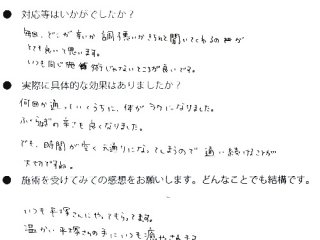 ● 対応等はいかがでしたか？
毎回、どこが悪いか調悪いかきちんと聞いてくれるのが
とても良いと思います。
いつも同じ施術じゃないところが良いです。
● 実際に具体的な効果はありましたか？
何回か通っていくうちに、体がラクになりました。
ふくらはぎの辛さも良くなりました。
でも、時間が空くと元通りになってしまうので通い続けることが
大切ですね。
● 施術を受けてみての感想をお願いします。どんなことでも結構です。
いつも平塚さんにやってもらってます。
温かい平塚さんの手にいつも癒やされてる